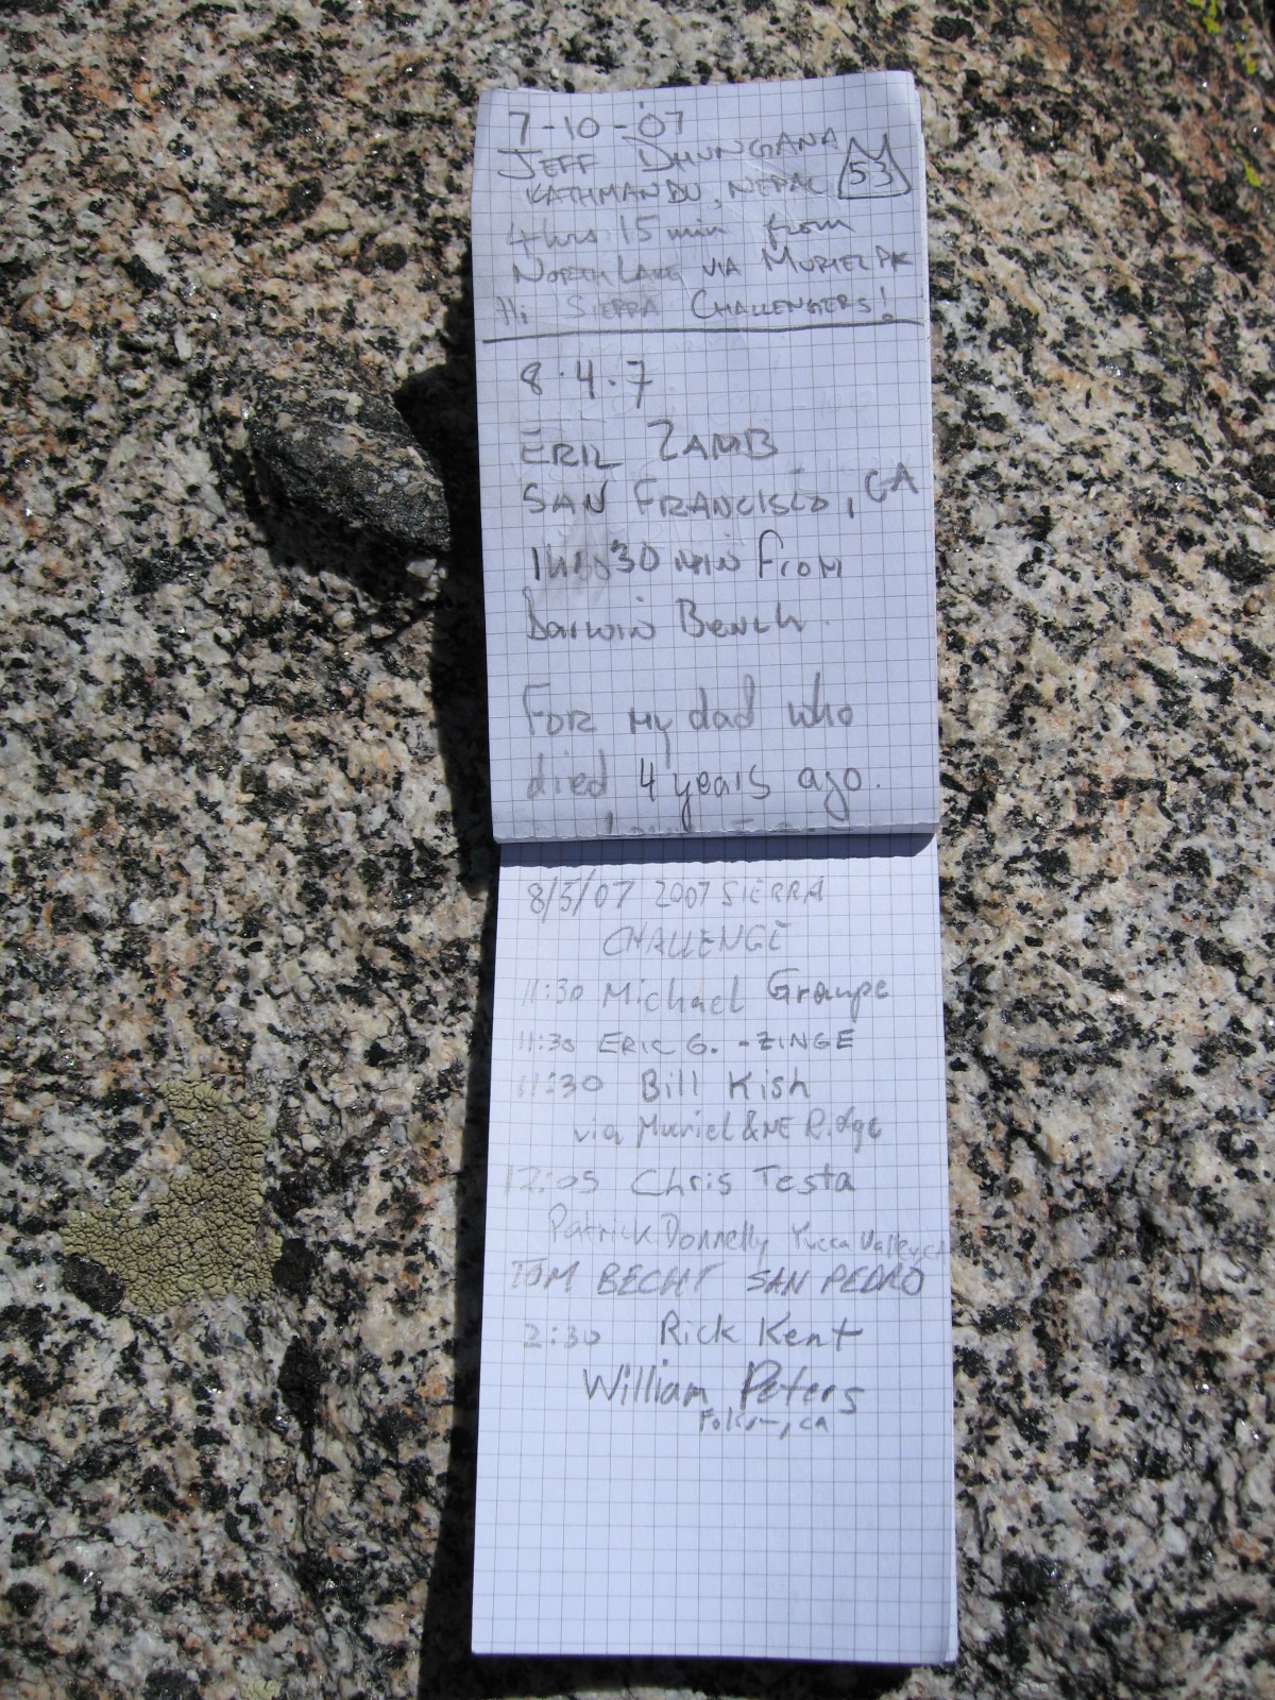 7-10-07
JEFF DHUNGANA
53
KATHMANDU, NEPAL
4 hrs 15 min from
NORTH LAKE VIA MURIEL PK
Hi SIERRA CHALLENGERS!
8.4.7
ERIC ZAMB
SAN FRANCISCO, CA
30 MIN From
Darwin Bench.
For my dad who
died 4 years ago.
8/5/07 2007 SIERRA
CHALLENGE
11:30 Michael Graupe
11:30 ERIC G. - ZINGE
11:30 Bill Kish
via Muriel & NE Ridge
12:05 Chris Testa
Patrick Donnelly Yucca Valley CA
TOM BECHT SAN PEDRO
2:30 Rick Kent
William Peters
, ca